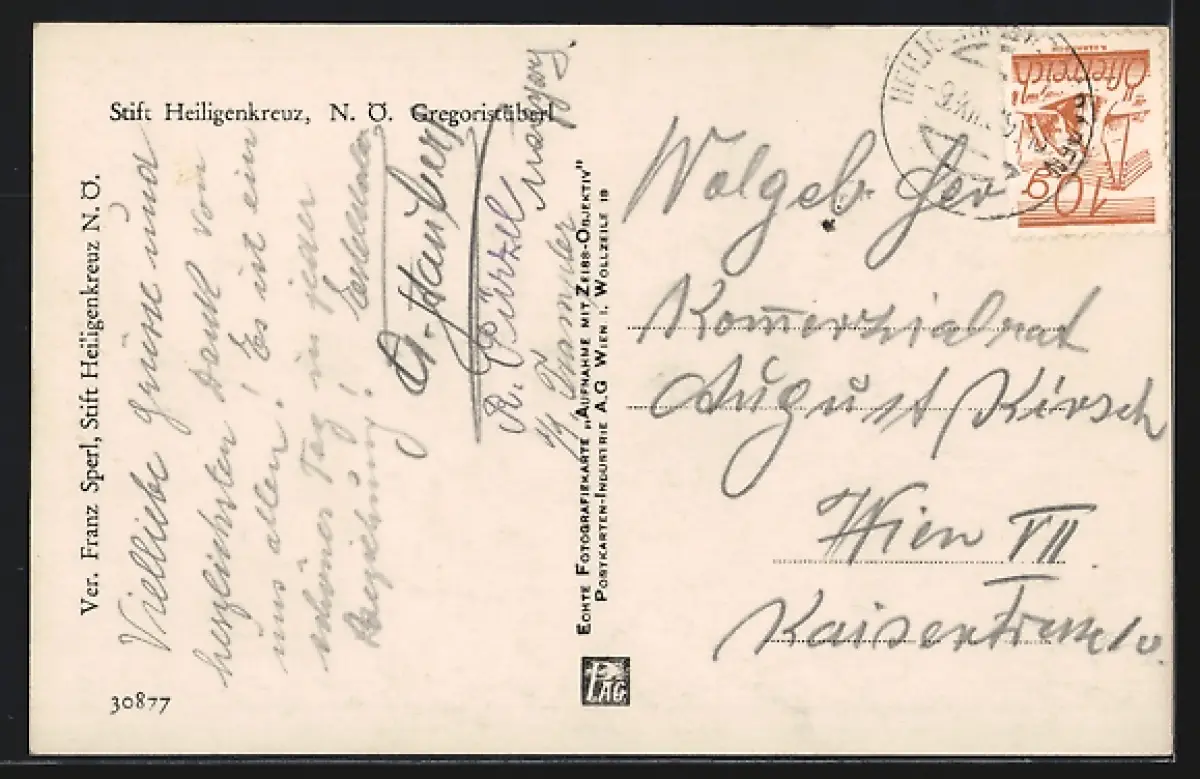 Stift Heiligenkreuz, N. Ö. Gregoristüberl
Ver. Franz Sperl, Stift Heiligenkreuz N.Ö.
Vielliebe Grüsse und
herzlichsten Dank von
uns allen! Es ist ein
schöner Tag in jeder
Beziehung!
R.
30877
ECHTE FOTOGRAFIEKARTE „AUFNAHME MIT ZEISS-OBJEKTIV"
POSTKARTEN-INDUSTRIE A.G WIEN I. WOLLZEILE 18
PAG.
HEILIG
Österreich
10g
Wolgeb. Herr
Komerzialrat
August Kirsch
Wien VII